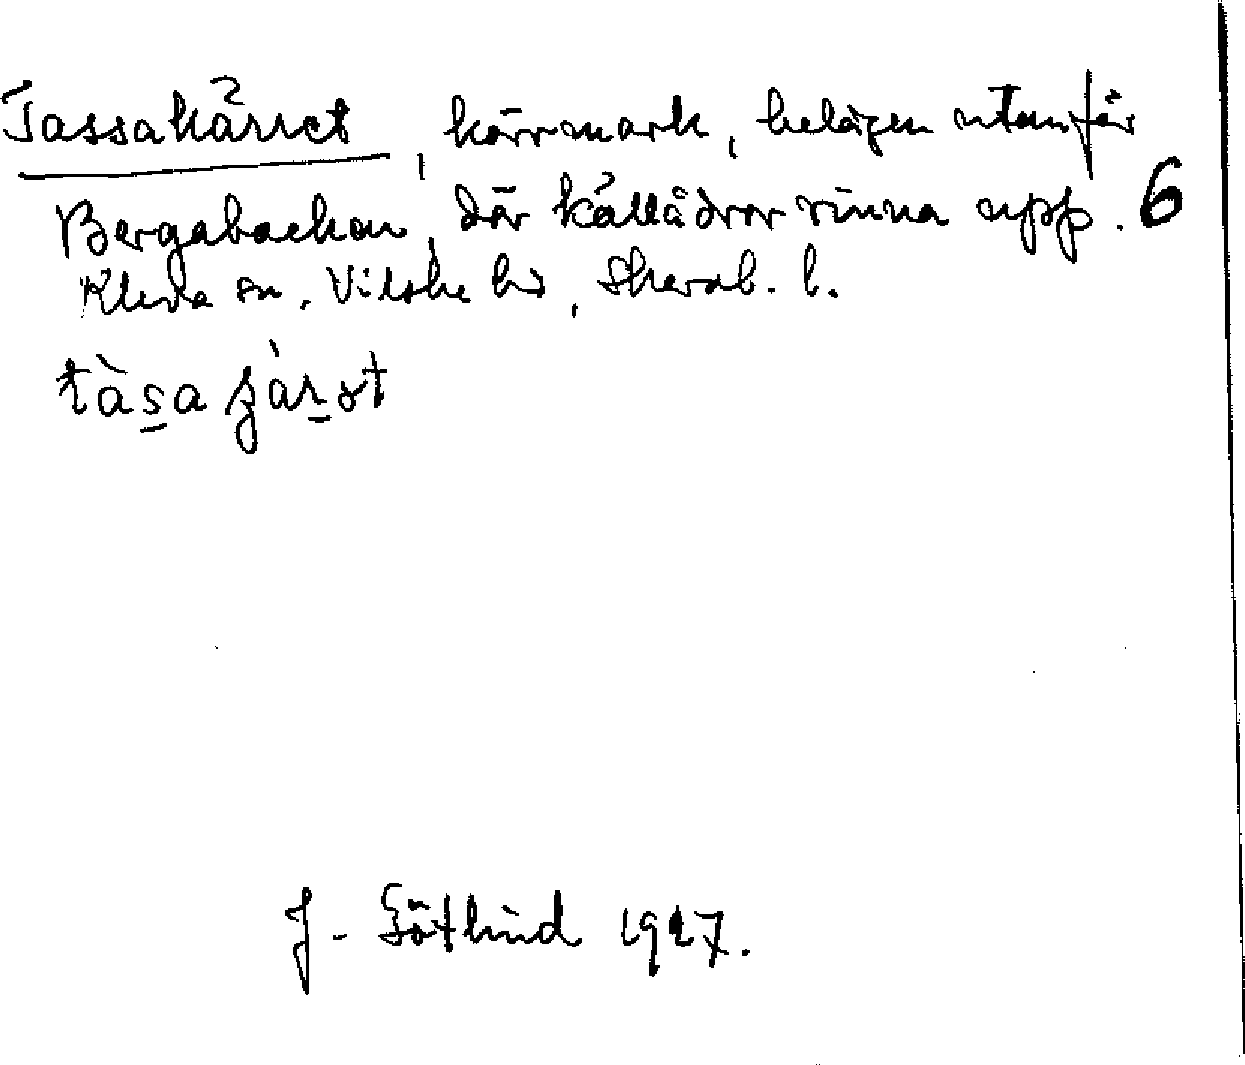 Tassakärret, kärrmark, belägen utanför
Bergabackan, där källådror rinna upp. 6
Kleva sn, Vilske hd, Skarab. l.
tàsa ʒàrət
J. Götlind 1927.